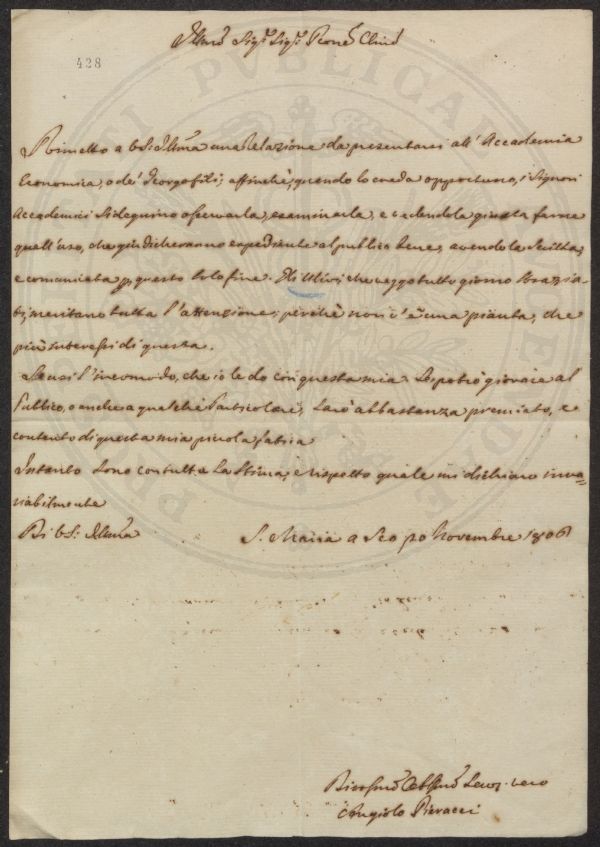 Illmo Sigr. Sigr. Pione Clmo
428
Rimetto a V.S. Illma una Relazione da presentarsi all' Accademia
Economica, o de' Georgofili; affinchè, quando lo creda opportuno, i Signori
Accademici si degnino osservarla, esaminarla, e credendola giusta farne
quell'uso, che giudicheranno expediente al publico bene, avendola scritta,
e comunicata p questo solo fine. Gli Ulivi, che veggo tutto giorno strazia-
ti, meritano tutta l'attenzione; perchè non v'è una pianta, che
più interessi di questa.
Scusi l'incomodo, che io le do con questa mia. Se potrò giovare al
Publico, o anche a qualche Particolare, sarò abbastanza premiato, e
contento di questa mia piccola fatica
Intanto sono con tutta la stima, e rispetto quale mi dichiaro inva=
riabilmente
Di V.S. Illma
S. Maria a Sco po Novembre 1806
Devmo Obblmo Serv. vero
Angiolo Pieracci
PUBLICAE